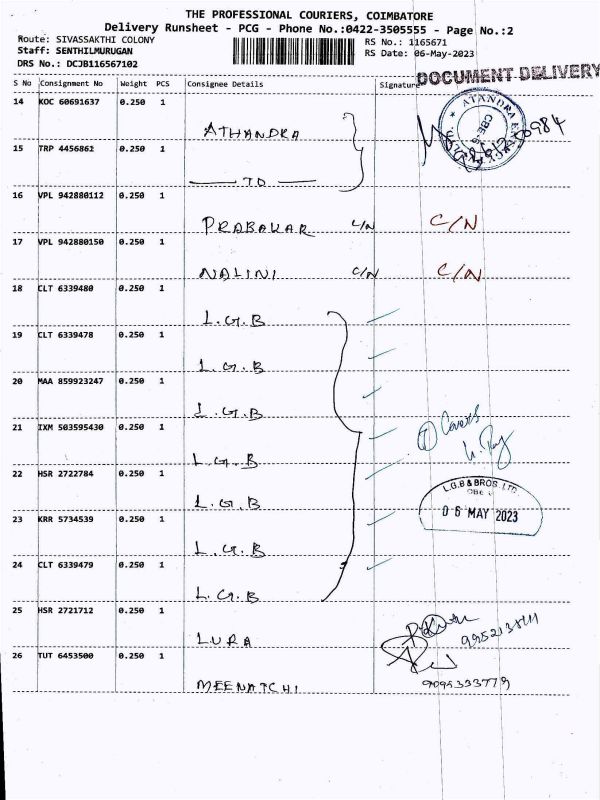 THE PROFESSIONAL COURIERS, COIMBATORE
Delivery Runsheet - PCG - Phone No.:0422-3505555 - Page No.:2
Route: SIVASSAKTHI COLONY
RS No.: 1165671
Staff: SENTHILMURUGAN
RS Date: 06-May-2023
DRS No.: DCJB116567102
DOCUMENT DELIVERY
S No Consignment No Weight PCS Consignee Details Signature
14 KOC 60691637 0.250 1
ATHANDRA
15 TRP 4456862 0.250 1
TO
16 VPL 942880112 0.250 1
PRABAKAR C/N C/N
17 VPL 942880150 0.250 1
NALINI C/N C/N
18 CLT 6339480 0.250 1
L.G.B
19 CLT 6339478 0.250 1
L.G.B
20 MAA 859923247 0.250 1
L.G.B
21 IXM 503595430 0.250 1
7 Covers
L.G.B
22 HSR 2722784 0.250 1
L.G.B
L.G.B & BROS. LTD.
CBE
06 MAY 2023
23 KRR 5734539 0.250 1
L.G.B
24 CLT 6339479 0.250 1
L.G.B
25 HSR 2721712 0.250 1
LURA
26 TUT 6453500 0.250 1
MEENATCHI
9095333779